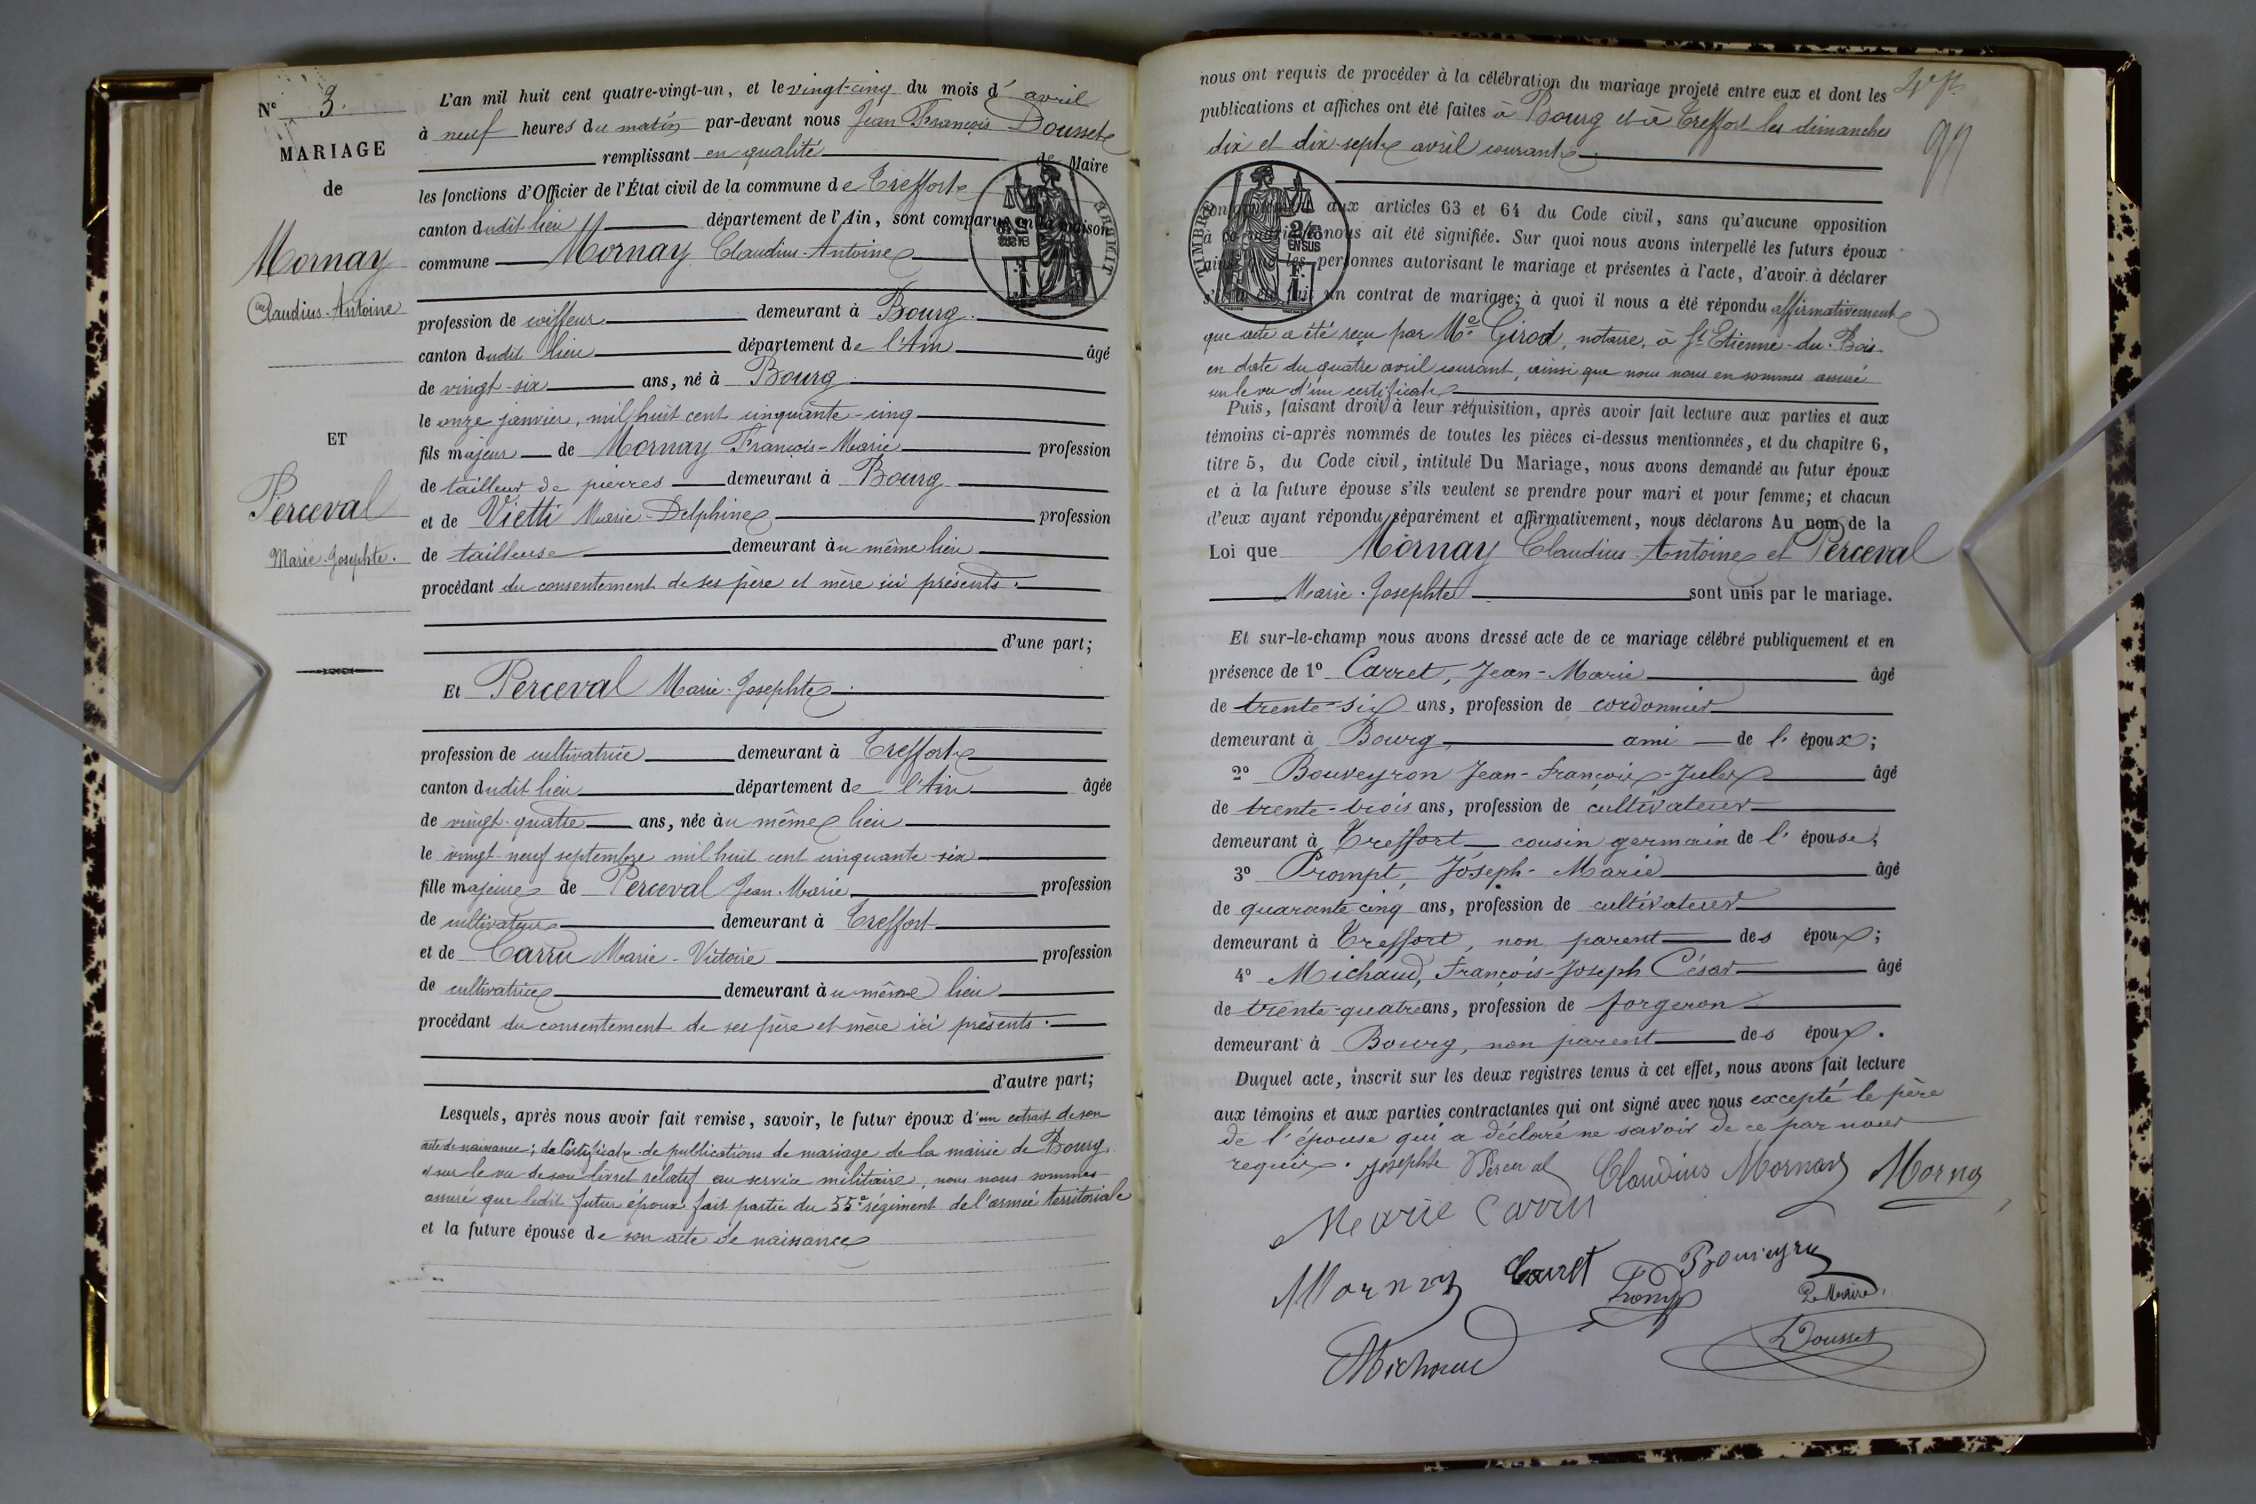 N° 3.
MARIAGE
de
Mornay
Claudius-Antoine
ET
Perceval
Marie-Josephte.
L'an mil huit cent quatre-vingt-un, et le vingt-cinq du mois d'avril
à neuf heures du matin par-devant nous Jean François Dousset
remplissant en qualité de Maire
les fonctions d'Officier de l'État civil de la commune de Treffort
canton dudit lieu département de l'Ain, sont comparus en la maison
commune Mornay Claudius-Antoine
profession de coiffeur demeurant à Bourg.
canton dudit lieu département de l'Ain âgé
de vingt-six ans, né à Bourg
le onze janvier, mil huit cent cinquante-cinq
fils majeur de Mornay François-Marie profession
de tailleur de pierres demeurant à Bourg
et de Vietti Marie-Delphine profession
de tailleuse demeurant au même lieu
procédant du consentement de ses père et mère ici présents.
d'une part;
Et Perceval Marie-Josephte.
profession de cultivatrice demeurant à Treffort
canton dudit lieu département de l'Ain âgée
de vingt-quatre ans, née au même lieu
le vingt-neuf septembre mil huit cent cinquante-six
fille majeure de Perceval Jean-Marie profession
de cultivateur demeurant à Treffort
et de Carru Marie-Victoire profession
de cultivatrice demeurant au même lieu
procédant du consentement de ses père et mère ici présents.
d'autre part;
Lesquels, après nous avoir fait remise, savoir, le futur époux d'un extrait de son
acte de naissance; de Certificat de publications de mariage de la mairie de Bourg
et sur le vu de son livret relatif au service militaire, nous nous sommes
assuré que ledit futur époux fait partie du 55e régiment de l'armée territoriale
et la future épouse de son acte de naissance
nous ont requis de procéder à la célébration du mariage projeté entre eux et dont les
publications et affiches ont été faites à Bourg et à Treffort les dimanches
dix et dix-sept avril courant
TIMBRE
2/10 EN SUS
conformément aux articles 63 et 64 du Code civil, sans qu'aucune opposition
à ce mariage nous ait été signifiée. Sur quoi nous avons interpellé les futurs époux
ainsi que les personnes autorisant le mariage et présentes à l'acte, d'avoir à déclarer
s'il a été fait un contrat de mariage; à quoi il nous a été répondu affirmativement
que acte a été reçu par Me Girod, notaire, à St Etienne-du-Bois
en date du quatre avril courant, ainsi que nous nous en sommes assuré
sur le vu d'un certificat
Puis, faisant droit à leur réquisition, après avoir fait lecture aux parties et aux
témoins ci-après nommés de toutes les pièces ci-dessus mentionnées, et du chapitre 6,
titre 5, du Code civil, intitulé Du Mariage, nous avons demandé au futur époux
et à la future épouse s'ils veulent se prendre pour mari et pour femme; et chacun
d'eux ayant répondu séparément et affirmativement, nous déclarons Au nom de la
Loi que Mornay Claudius-Antoine et Perceval
Marie-Josephte sont unis par le mariage.
Et sur-le-champ nous avons dressé acte de ce mariage célébré publiquement et en
présence de 1° Carret, Jean-Marie âgé
de trente-six ans, profession de cordonnier
demeurant à Bourg, ami de l'époux;
2° Bouveyron Jean-François-Jules âgé
de trente-trois ans, profession de cultivateur
demeurant à Treffort cousin germain de l'épouse;
3° Prompt, Joseph-Marie âgé
de quarante cinq ans, profession de cultivateur
demeurant à Treffort, non parent des époux;
4° Michaud, François-Joseph César âgé
de trente-quatre ans, profession de forgeron
demeurant à Bourg, non parent des époux.
Duquel acte, inscrit sur les deux registres tenus à cet effet, nous avons fait lecture
aux témoins et aux parties contractantes qui ont signé avec nous excepté le père
de l'épouse qui a déclaré ne savoir de ce par nous
requis. Josephte Perceval Claudius Mornay Mornay
Marie Carru
Mornay Carret Bouveyron
Promp Le Maire,
Michaud Dousset